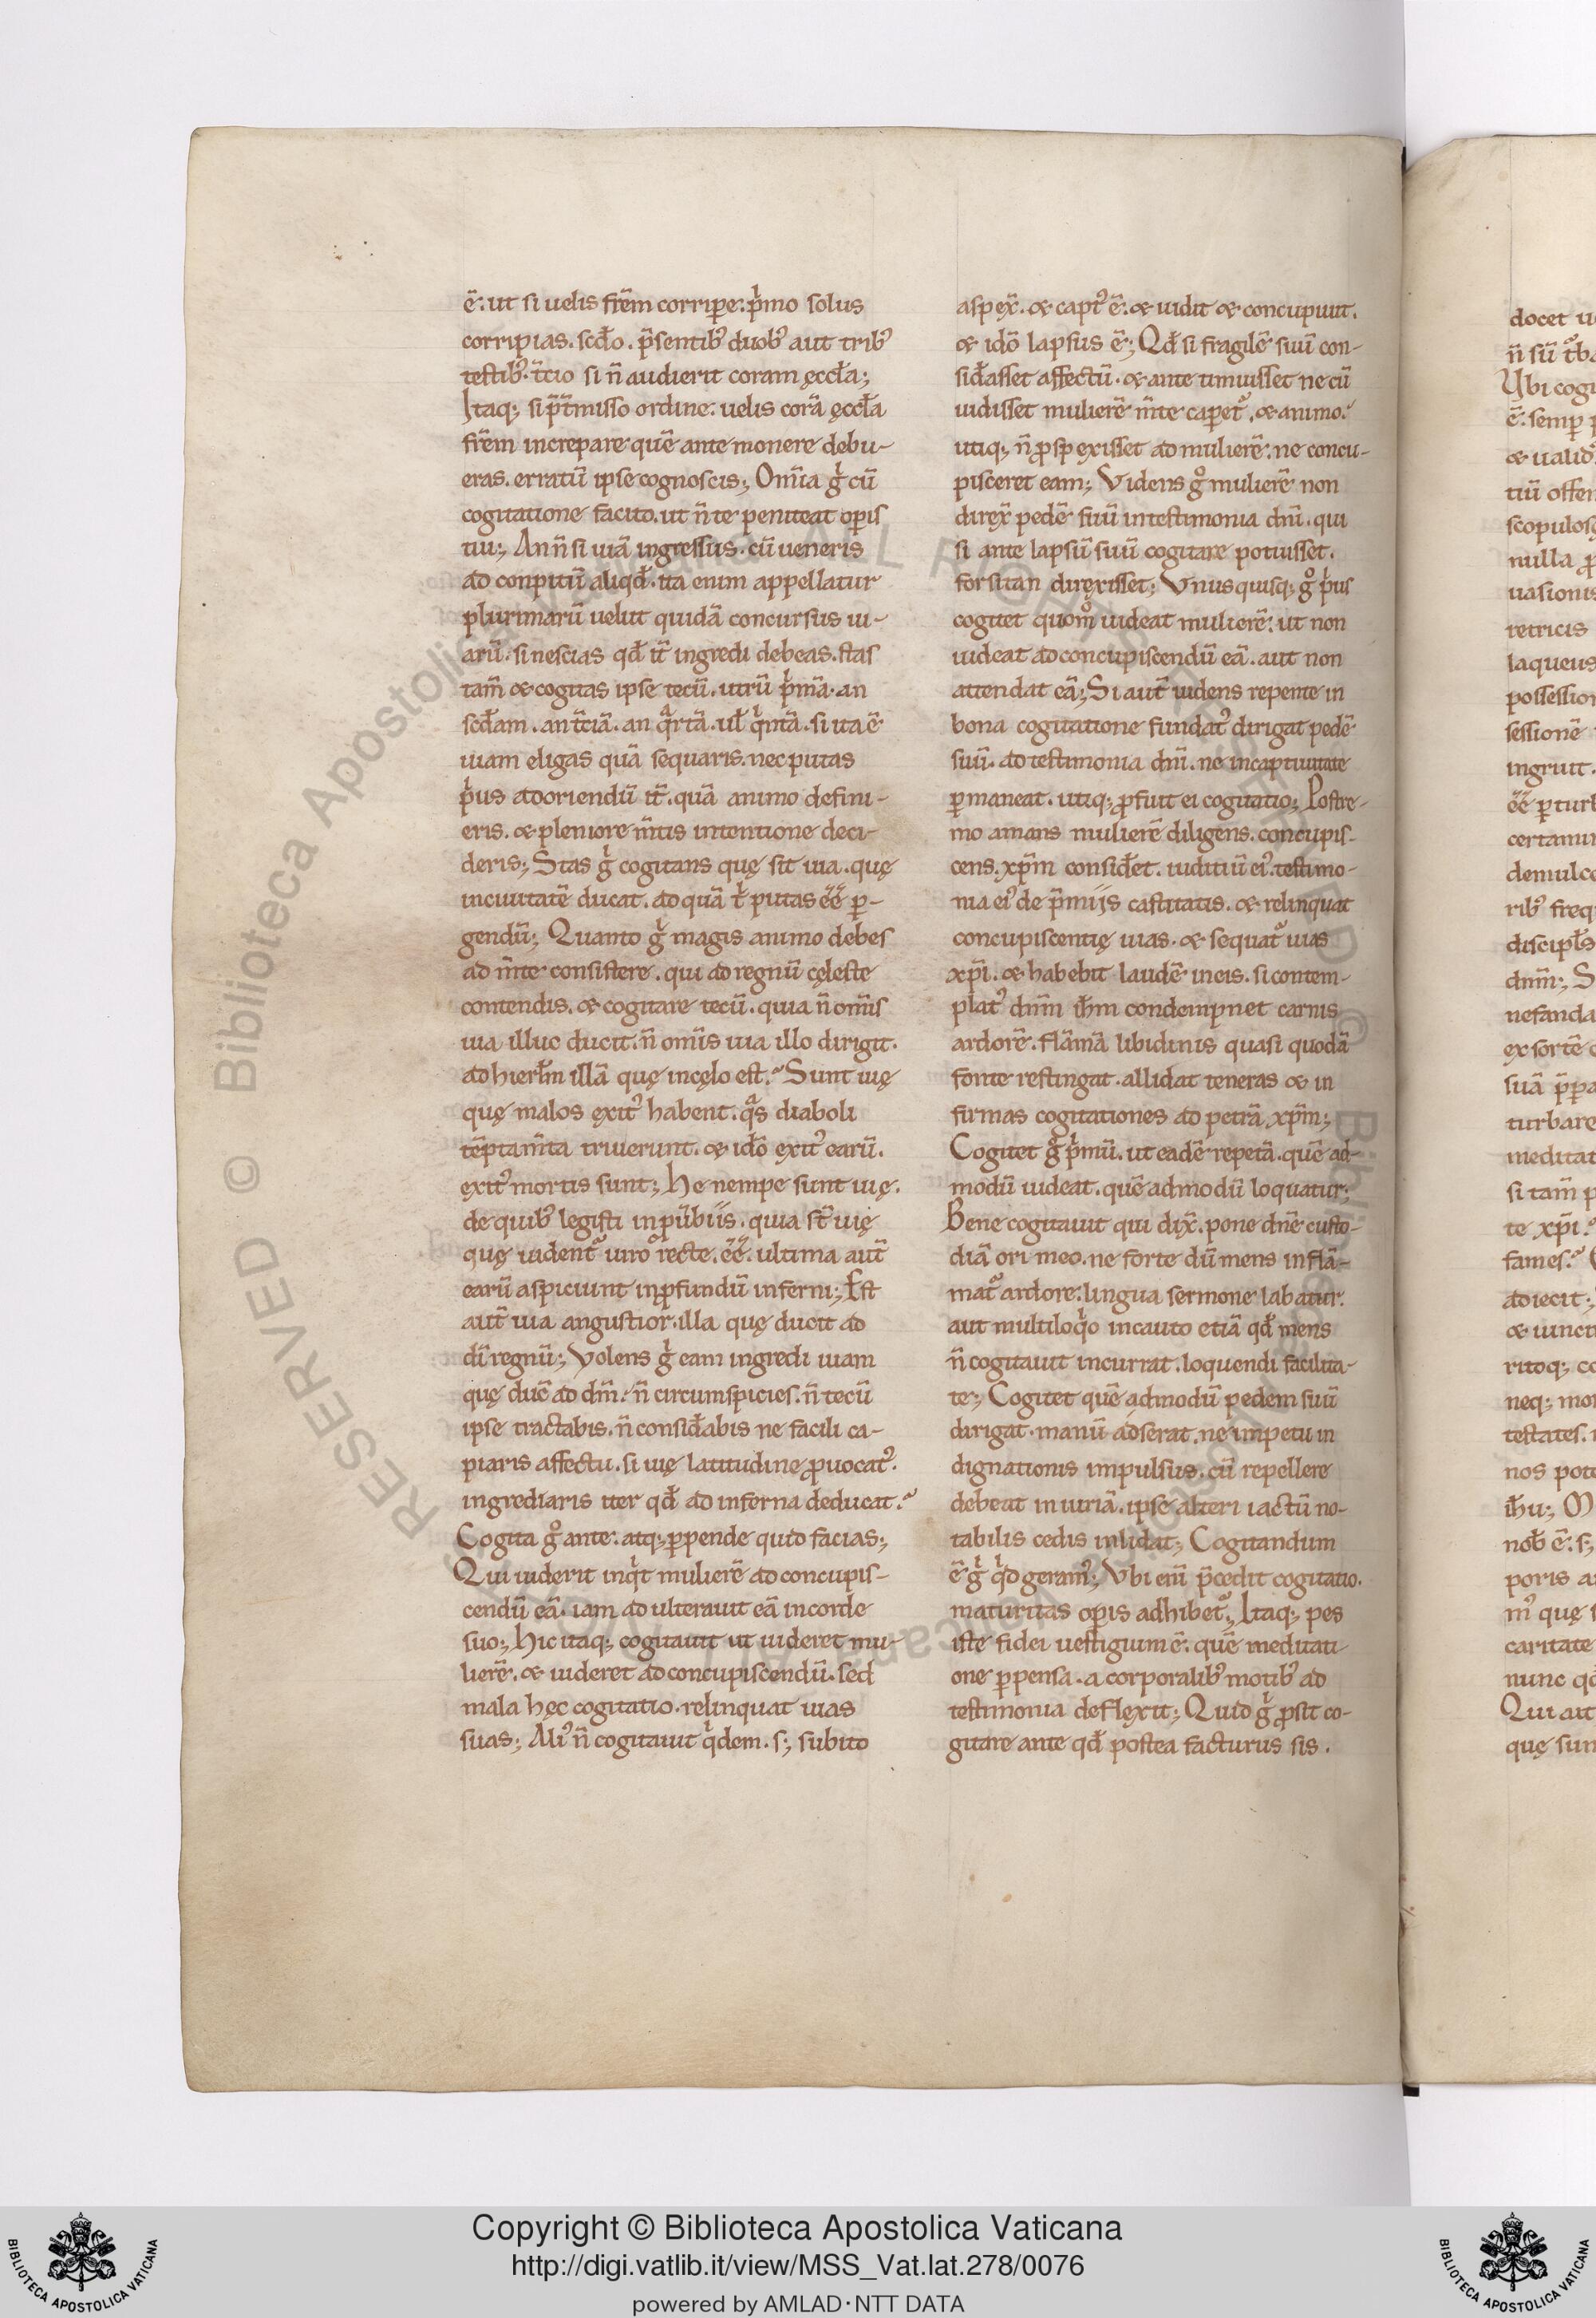 ē. ut si uelis frēm corripere. pͥmo solus
corripias. scđo. p̄sentibꝰ duobꝰ aut tribꝰ
testibꝰ. t̄cio si n̄ audierit coram ęccɫa;
Itaq; si p̄t̄misso ordine. uelis corā ęccɫa
frēm increpare quē ante monere debu-
eras. erratū ipse cognoscis; Om̄ia gͥ cū
cogitatione facito. ut n̄ te peniteat oꝑis
tui; An n̄ si uiā ingressus. cū ueneris
ad conpitū aliqđ. ita enim appellatur
plurimarū uelut quidā concursus ui-
arū. si nescias qđ it̄ ingredi debeas. stas
tam̄ & cogitas ipse tecū. utrū pͥmā. an
scđam. an t̄ciā. an qͣrtā. uɫ qͥntā. si ita ē
uiam eligas quā sequaris. nec putas
pͥus adoriendū it̄. quā animo defini-
eris. & pleniore m̄tis intentione deci-
deris; Stas gͥ cogitans quę sit uia. quę
in ciuitatē ducat. ad quā tͥ putas eē̄ ꝑ-
gendū; Quanto gͥ magis animo debes
ad m̄te consistere. qui ad regnū cęleste
contendis. & cogitare tecū. quia n̄ om̄is
uia illuc ducit. n̄ om̄is uia illo dirigit.
ad hierɫm illā quę in cęlo est. Sunt uię
quę malos exitꝰ habent. qͣs diaboli
tēptam̄ta triuerunt. & idō exitꝰ earū.
exitꝰ mortis sunt; He nempe sunt uię.
de quibꝰ legisti in pūbiis. quia st̄ uię
quę uident᷑ uiro recte. eē̄. ultima aut̄
earū aspiciunt in ꝓfundū inferni; Est
aut̄ uia angustior. illa quę ducit ad
dī regnū; Volens gͥ eam ingredi uiam
quę duc̄ ad dm̄. n̄ circumspicies. n̄ tecū
ipse tractabis. n̄ consiđabis ne facili ca-
piaris affectu. si uię latitudine ꝓuocatꝰ.
ingrediaris iter qđ ad inferna deducat.
Cogita gͦ ante. atq; ꝑpende quid facias;
Qui uiderit inqͥt mulierē ad concupis-
cendū eā. iam adulterauit eā in corde
suo; Hic itaq; cogitauit ut uideret mu-
lierē. & uideret ad concupiscendū. sed
mala hęc cogitatio. relinquat uias
suas; Aliꝰ n̄ cogitauit qͥdem. s; subito
aspex̄. & captꝰ ē. & uidit & concupiuit.
& idō lapsus ē; Qđ si fragilē suū con-
siđasset affectū. & ante timuisset ne cū
uidisset mulierē m̄te caperet᷑. & animo.
utiq; n̄ ꝓspexisset ad mulierē. ne concu-
pisceret eam; Videns gͦ mulierē non
direx̄ pedē suū in testimonia dnī. qui
si ante lapsū suū cogitare potuisset.
forsitan direxisset; Vnusquisq; gͦ pͥus
cogitet quom̊ uideat mulierē. ut non
uideat ad concupiscendū eā. aut non
attendat eā; Si aut̄ uidens repente in
bona cogitatione fundatꝰ dirigat pedē
suū. ad testimonia dnī. ne in captiuitate
ꝑmaneat. utiq; ꝓfuit ei cogitatio; Postre-
mo amans mulierē diligens. concupis-
cens. xp̄m consiđet. iuditiū eiꝰ. testimo-
nia eiꝰ de p̄mijs castitatis. & relinquat
concupiscentię uias. & sequat᷑ uias
xp̄i. & habebit laudē in eis. si contem-
platꝰ dnm̄ iħm condempnet carnis
ardorē. flāmā libidinis quasi quodā
fonte restingat. allidat teneras & in
firmas cogitationes ad petrā xp̄m;
Cogitet gͦ pͥmū. ut eadē repetā. quē ad-
modū uideat. quē admodū loquatur;
Bene cogitauit qui dix̄. pone dnē custo-
diā ori meo. ne forte dū mens inflā-
mat᷑ ardore. lingua sermone labatur.
aut multiloqͥo incauto etiā qđ mens
n̄ cogitauit incurrat. loquendi facilita-
te; Cogitet quē admodū pedem suū
dirigat. manū adserat. ne impetu in
dignationis impulsus. cū repellere
debeat iniuriā. ipse alteri iactū no-
tabilis cedis inlidat; Cogitandum
ē gͥ qͥd geramꝰ; Vbi enī p̄cedit cogitatio.
maturitas oꝑis adhibet᷑; Itaq; pes
iste fidei uestigium ē. quē meditati-
one ꝑpensa. a corporalibꝰ motibꝰ ad
testimonia deflexit; Quid gͥ ꝓsit co-
gitare ante qđ postea facturus sis.
Copyright © Biblioteca Apostolica Vaticana
http://digi.vatlib.it/view/MSS_Vat.lat.278/0076
powered by AMLAD·NTT DATA